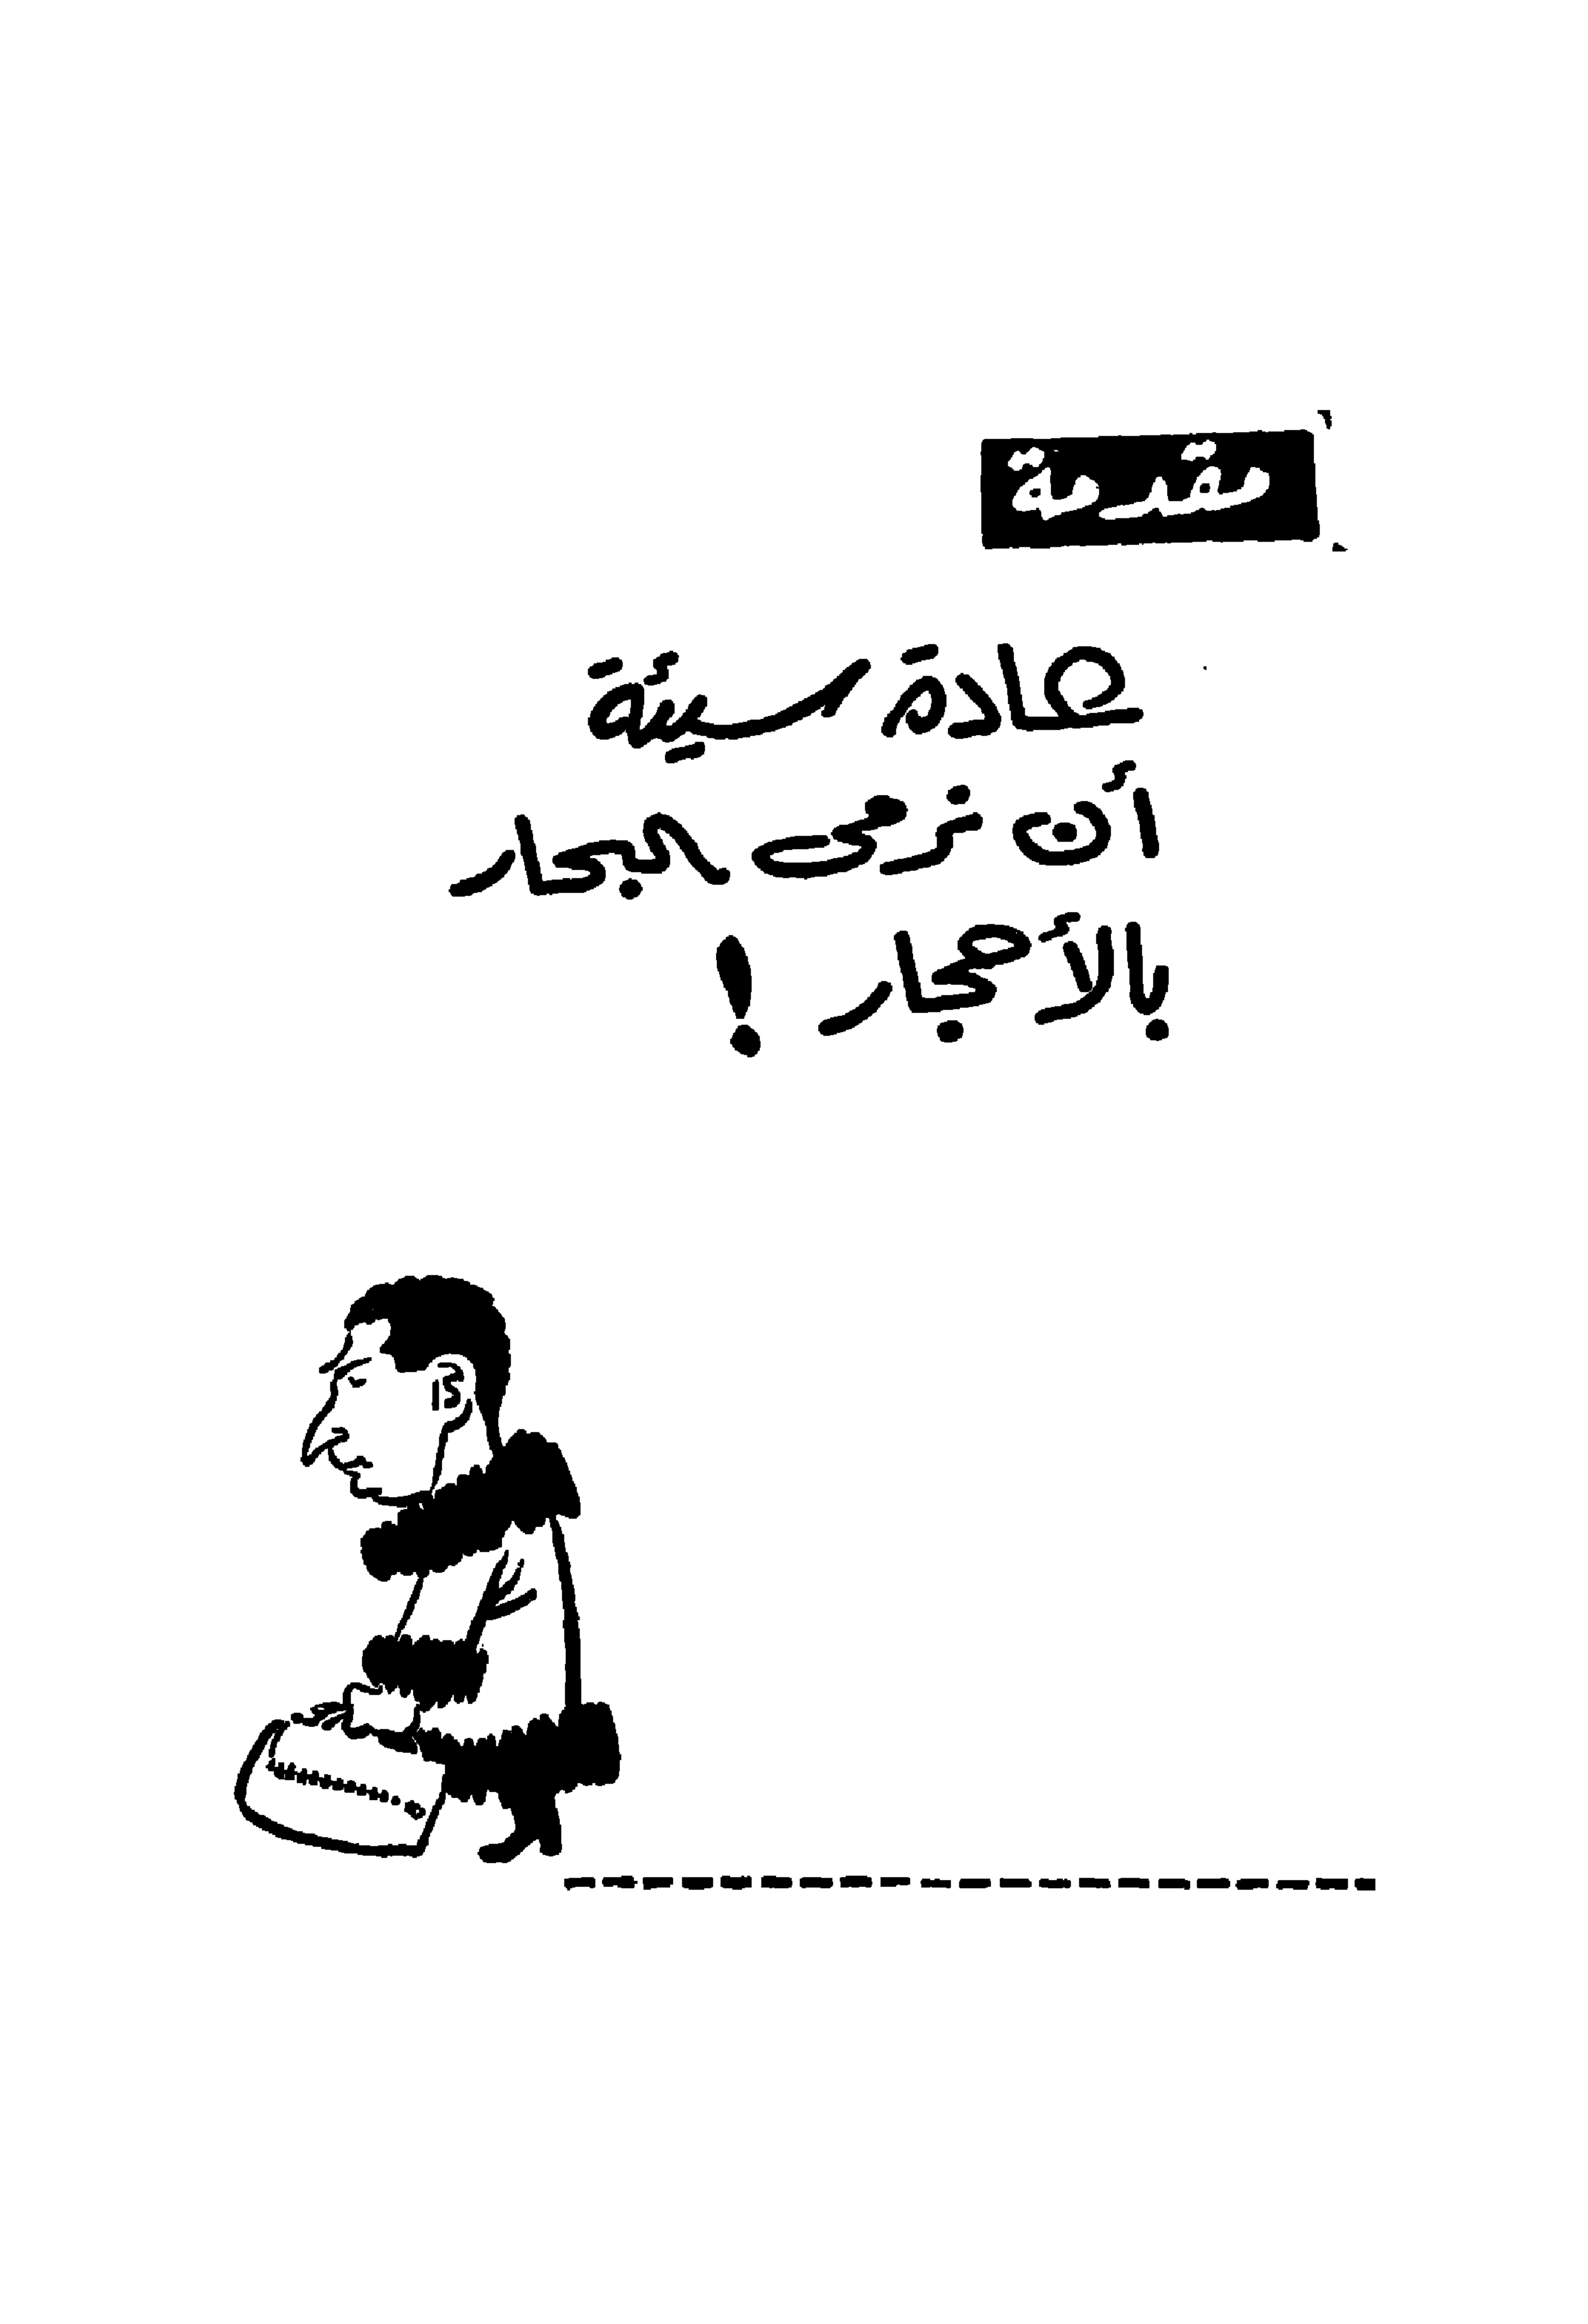 مقدمة
عادة سيئة
أن نرمى البحار
بالأحجار !